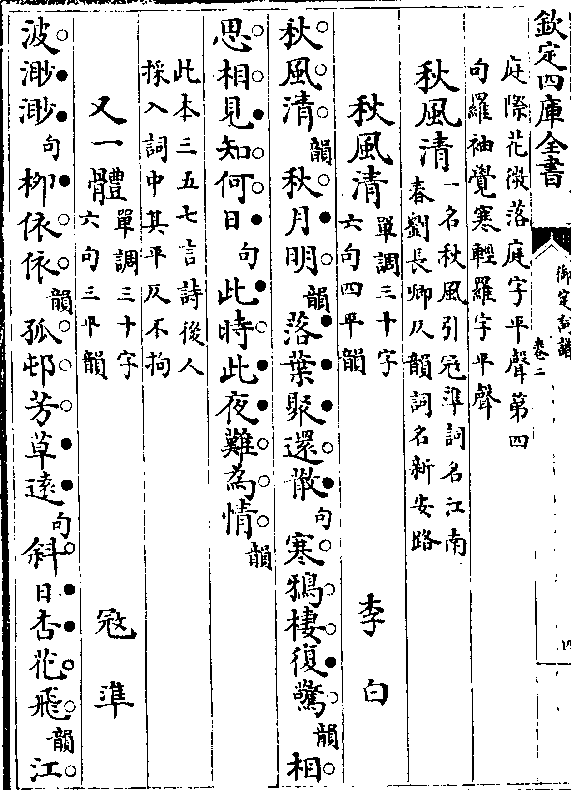 欽定四庫全書
御定詞譜
卷二
四
庭際花微落庭字平聲第四
句羅袖覺寒輕羅字平聲
秋風清
一名秋風引寇準詞名江南
春劉長卿仄韻詞名新安路
秋風清
單調三十字
六句四平韻
李白
秋風清韻秋月明韻落葉聚還散句寒鴉棲復驚韻相
思相見知何日句此時此夜難為情韻
此本三五七言詩後人
採入詞中其平仄不拘
又一體
單調三十字
六句三平韻
寇準
波渺渺句柳依依韻孤邨芳草遠句斜日杏花飛韻江